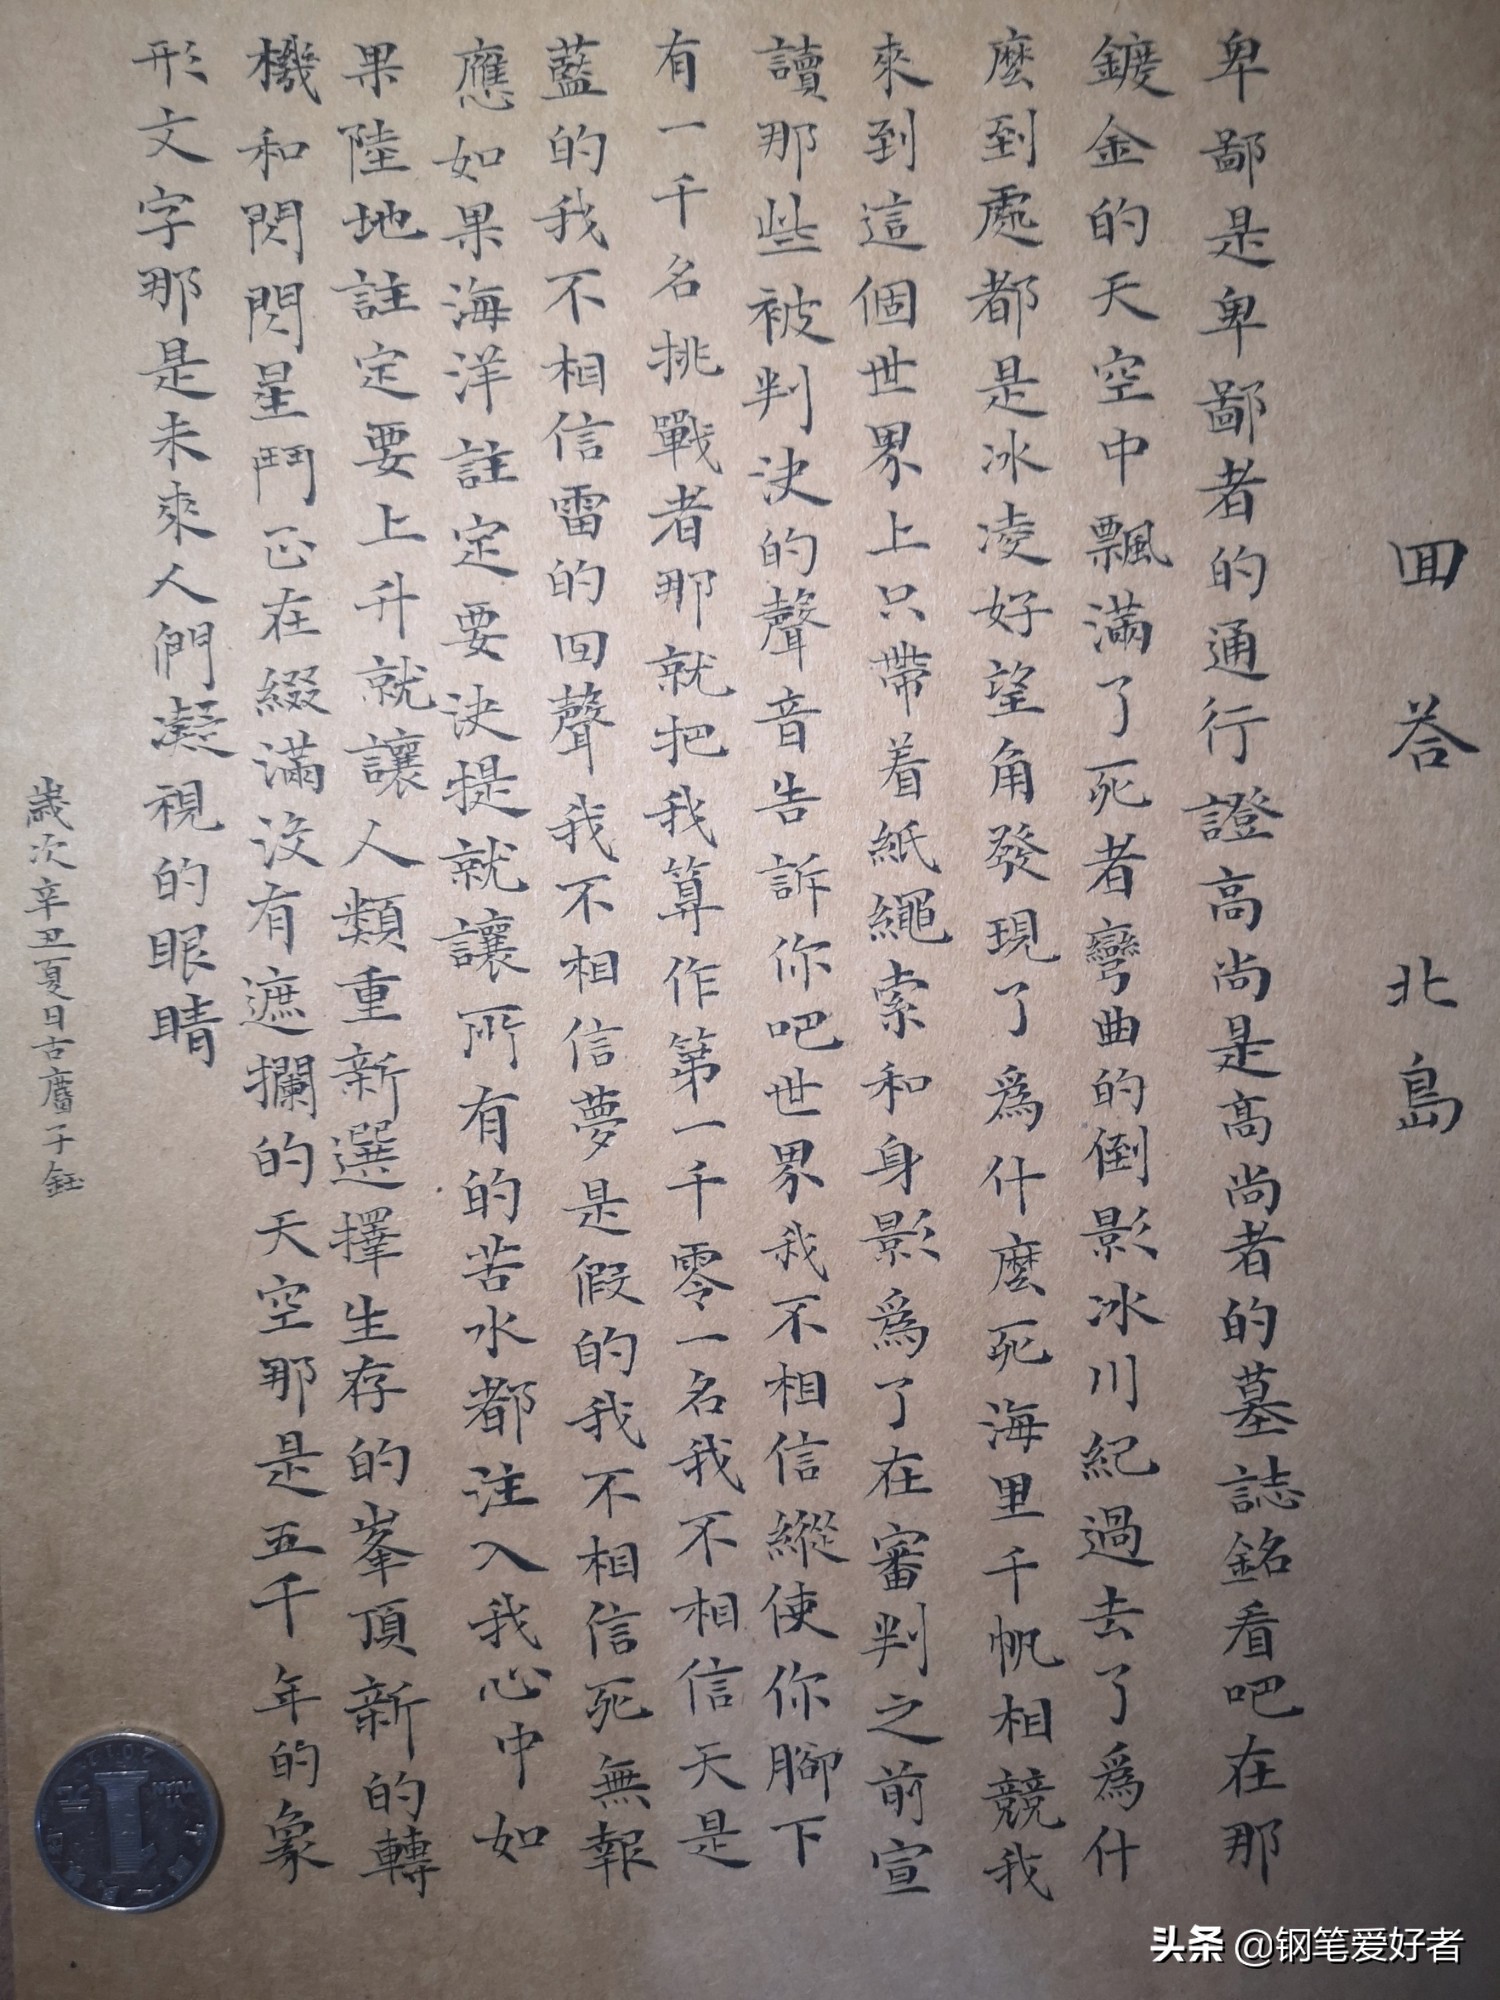 回答 北島
卑鄙是卑鄙者的通行證高尚是高尚者的墓誌銘看吧在那
鍍金的天空中飄滿了死者彎曲的倒影冰川紀過去了爲什
麼到處都是冰凌好望角發現了爲什麼死海里千帆相競我
來到這個世界上只帶着紙繩索和身影爲了在審判之前宣
讀那些被判決的聲音告訴你吧世界我不相信縱使你腳下
有一千名挑戰者那就把我算作第一千零一名我不相信天是
藍的我不相信雷的回聲我不相信夢是假的我不相信死無報
應如果海洋註定要決提就讓所有的苦水都注入我心中如
果陸地註定要上升就讓人類重新選擇生存的峯頂新的轉
機和閃閃星鬥正在綴滿沒有遮攔的天空那是五千年的象
形文字那是未來人們凝視的眼睛
歲次辛丑夏日古廬子鈺
头条 @钢笔爱好者